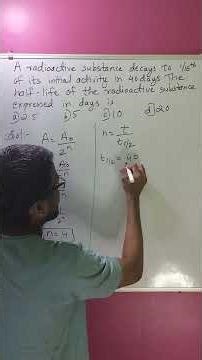 A radioactive substance decays to 1/16th
of its initial activity in 40 days The
half-life of the radioactive substance
expressed in days is
a) 2.5 b) 5 c) 10 d) 20
Sol:-
A = A₀/2ⁿ
n = t/t₁/₂
t₁/₂ = 40
n = 4